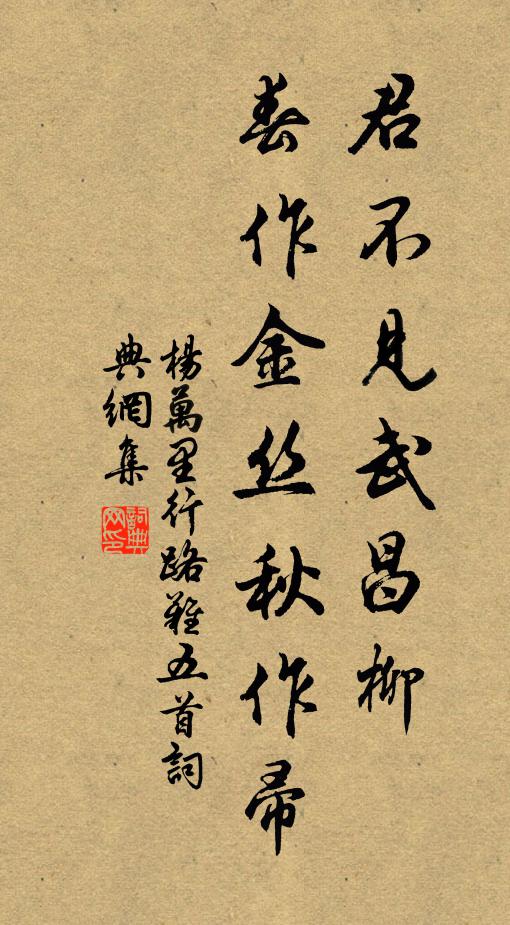 君不見武昌柳
春作金丝秋作帚
楊萬里行路難五首詞
典網集
詞典网印